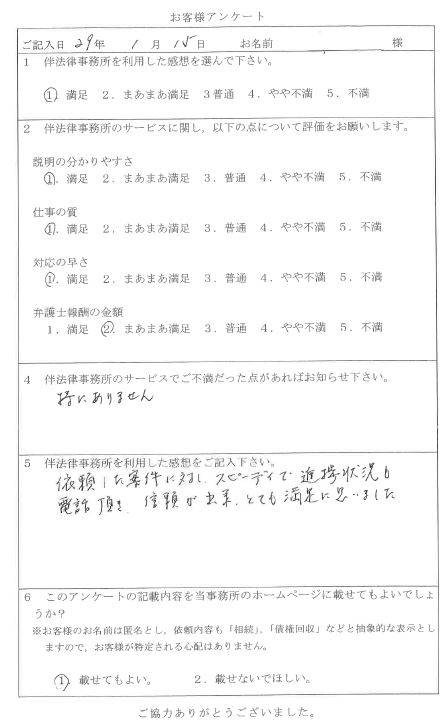 お客様アンケート
ご記入日 29年 1月 15日 お名前 様
1 伴法律事務所を利用した感想を選んで下さい。
①. 満足 2. まあまあ満足 3普通 4. やや不満 5. 不満
2 伴法律事務所のサービスに関し，以下の点について評価をお願いします。
説明の分かりやすさ
①. 満足 2. まあまあ満足 3. 普通 4. やや不満 5. 不満
仕事の質
①. 満足 2. まあまあ満足 3. 普通 4. やや不満 5. 不満
対応の早さ
①. 満足 2. まあまあ満足 3. 普通 4. やや不満 5. 不満
弁護士報酬の金額
1. 満足 ②. まあまあ満足 3. 普通 4. やや不満 5. 不満
4 伴法律事務所のサービスでご不満だった点があればお知らせ下さい。
特にありません
5 伴法律事務所を利用した感想をご記入下さい。
依頼した案件に対し、スピーディで進捗状況も
電話頂き、信頼が出来、とても満足に思いました
6 このアンケートの記載内容を当事務所のホームページに載せてもよいでしょ
うか？
※お客様のお名前は匿名とし，依頼内容も「相続」，「債権回収」などと抽象的な表示とし
ますので，お客様が特定される心配はありません。
① 載せてもよい。 2. 載せないでほしい。
ご協力ありがとうございました。